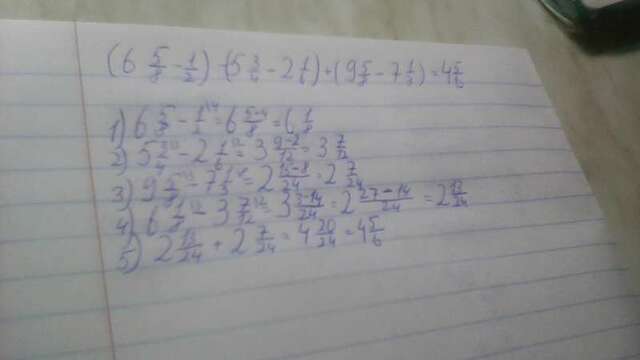 (6 5/8 - 1/2) - (5 3/4 - 2 1/6) + (9 5/8 - 7 1/3) = 4 5/6
1) 6 5/8 - 1/2 = 6 5-4/8 = 6 1/8
2) 5 3/4 - 2 1/6 = 3 9-2/12 = 3 7/12
3) 9 5/8 - 7 1/3 = 2 15-8/24 = 2 7/24
4) 6 1/8 - 3 7/12 = 3 3-14/24 = 2 27-14/24 = 2 13/24
5) 2 13/24 + 2 7/24 = 4 20/24 = 4 5/6